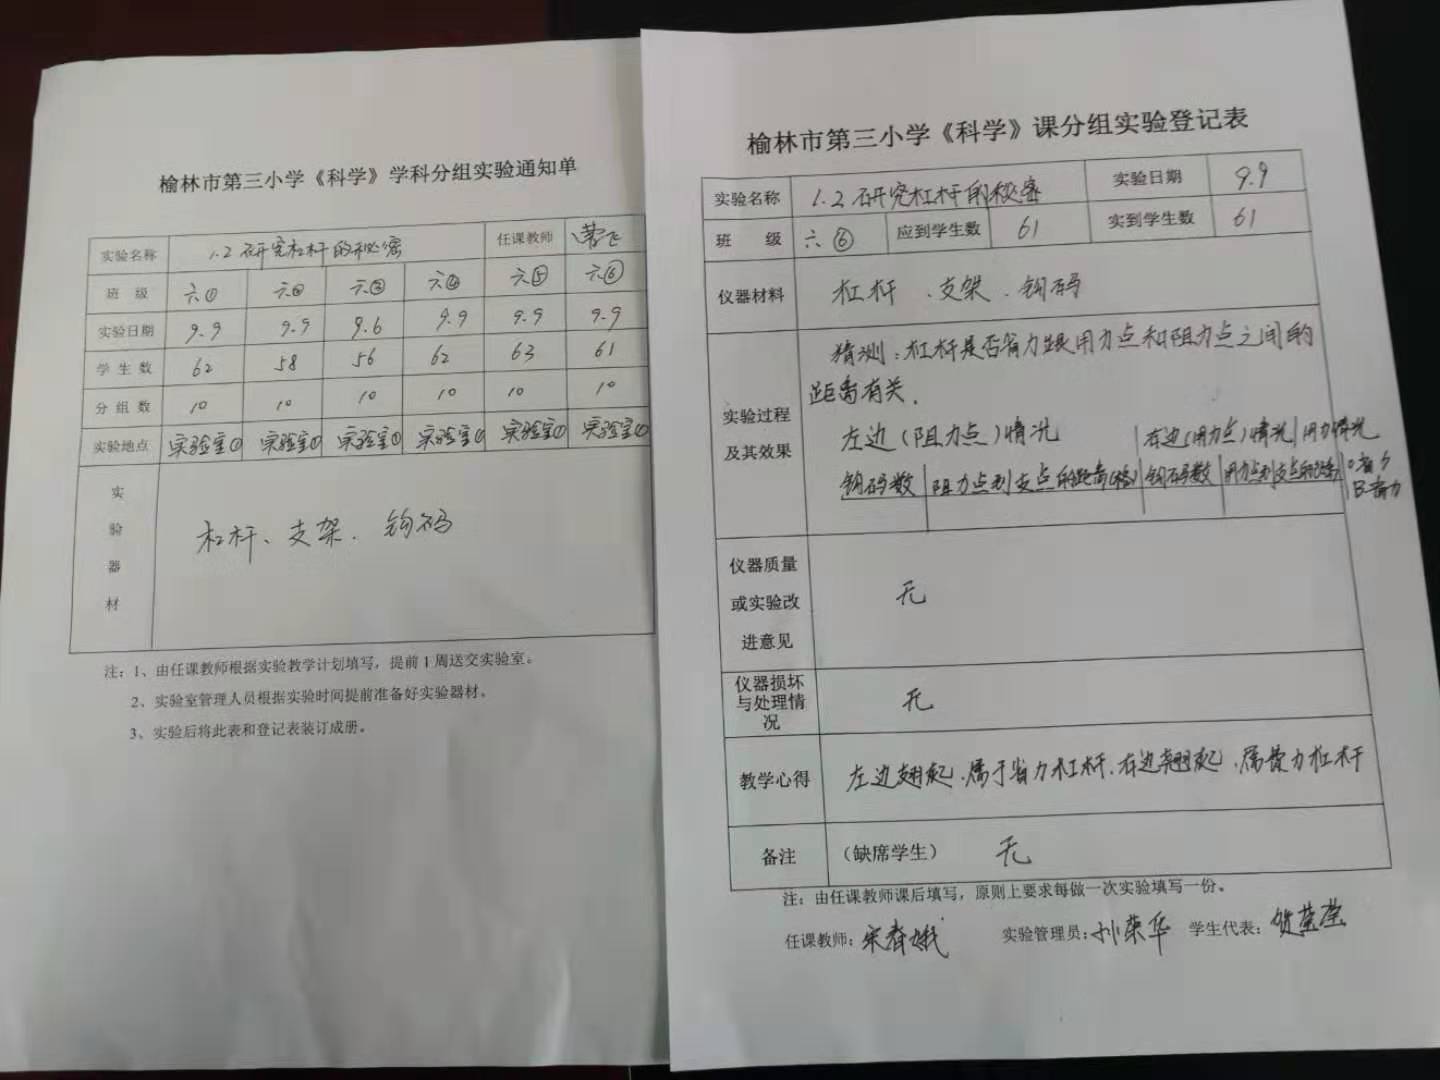 榆林市第三小学《科学》学科分组实验通知单
实验名称 1.2 研究杠杆的秘密 任课教师
班 级 六① 六② 六③ 六④ 六⑤ 六⑥
实验日期 9.9 9.9 9.6 9.9 9.9 9.9
学生数 62 58 56 62 63 61
分组数 10 10 10 10 10 10
实验地点 实验室① 实验室① 实验室① 实验室① 实验室① 实验室①
实验器材 杠杆、支架、钩码
注：1、由任课教师根据实验教学计划填写，提前1周送交实验室。
2、实验室管理人员根据实验时间提前准备好实验器材。
3、实验后将此表和登记表装订成册。
榆林市第三小学《科学》课分组实验登记表
实验名称 1.2 研究杠杆的秘密 实验日期 9.9
班 级 六⑥ 应到学生数 61 实到学生数 61
仪器材料 杠杆、支架、钩码
实验过程及其效果 猜测：杠杆是否省力跟用力点和阻力点之间的
距离有关.
左边（阻力点）情况 右边（用力点）情况 用力情况
钩码数 阻力点到支点的距离（格） 钩码数 用力点到支点的距离
仪器质量或实验改进意见 无
仪器损坏与处理情况 无
教学心得 左边翘起、属于省力杠杆、右边翘起、属费力杠杆
备注 （缺席学生） 无
注：由任课教师课后填写，原则上要求每做一次实验填写一份。
任课教师：宋春娥 实验管理员：孙荣华 学生代表：